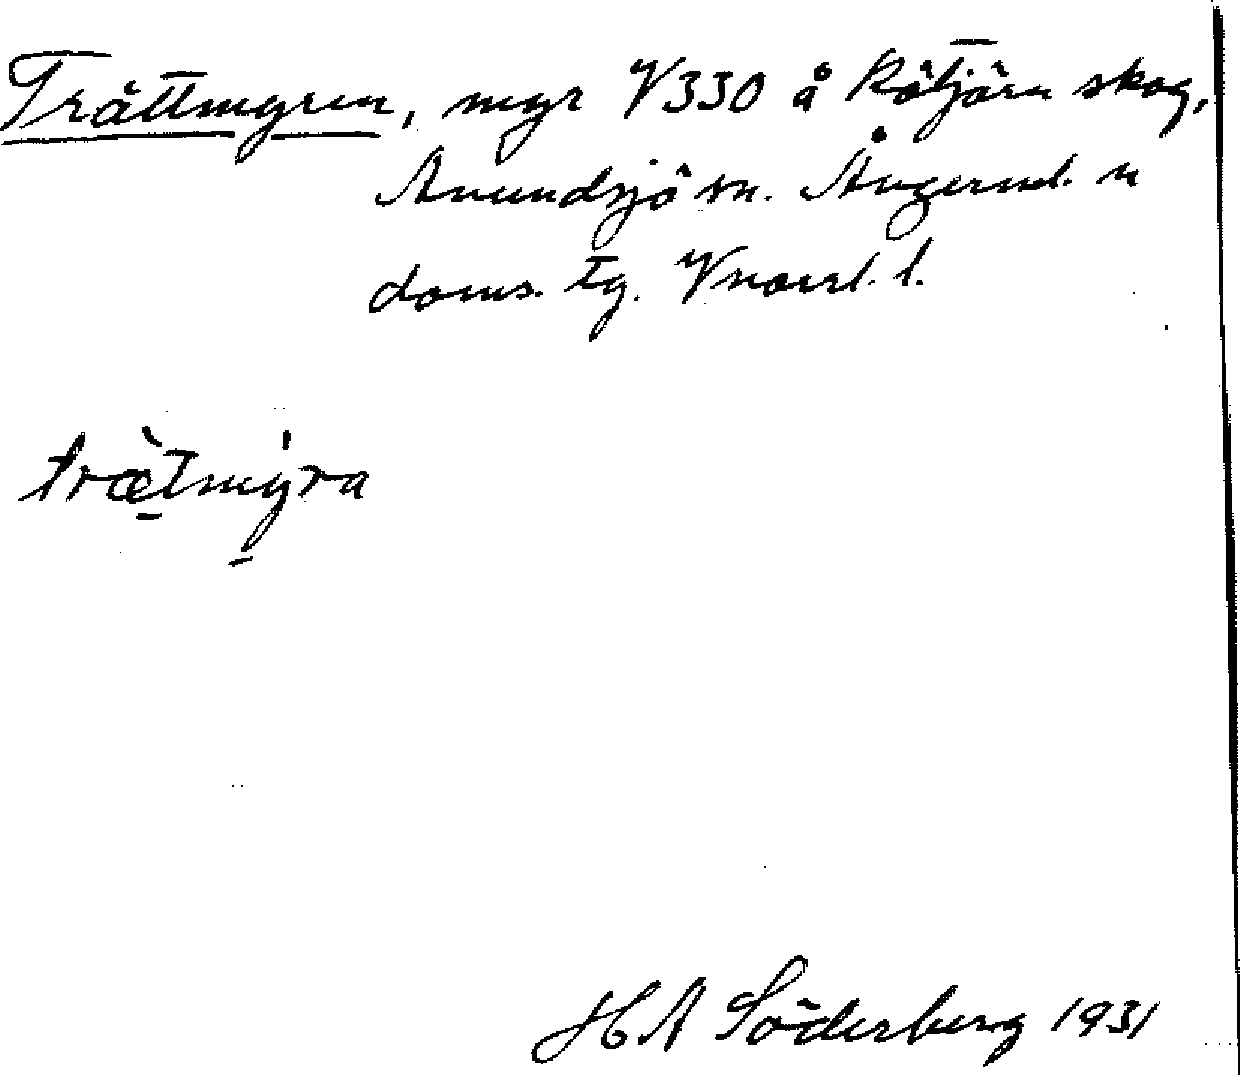 Trättmyren, myr V330 å Rötjärn skog,
Anundsjö sn. Ångerml. n
doms. tg. Vnorrl. l.
trætmyra
H A Söderberg 1931